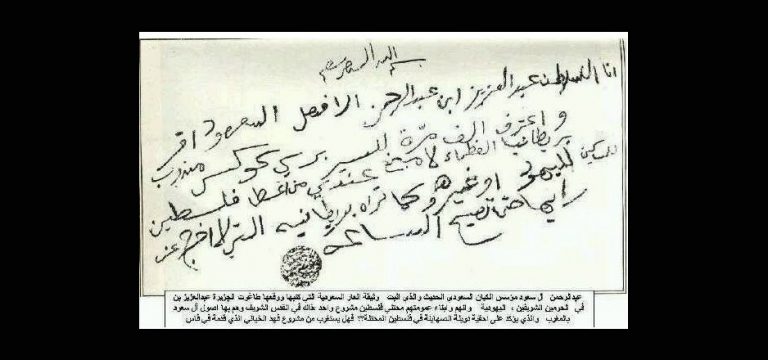 انا السلطان عبد العزيز ابن عبد الرحمن الافصل السعود اقر
و اعترف الف مرة للسير برسي كوكس مندوب
بريطانيا العظماء لا عندي من اعطا فلسطين
لليهود او غيرهم وكما تراه بريطانيه التي لا اخرج عن
رايها حتى تصيح الساعه
عبدالرحمن آل سعود مؤسس الكيان السعودي الحديث والذي اثبت وثيقة العار السعودية التي كتبها ووقعها طاغوت الجزيرة عبدالعزيز بن
في الحرمين الشريفين ، اليهودية وانهم وابناء عمومتهم محتلي فلسطين مشروع واحد هناك في القدس الشريف وهم بها أصول آل سعود
بالمقرب والذي يؤكد على احقية دويلة الصهاينة في فلسطين المحتلة؟؟ فهل يستغرب من مشروع فهد الخياني الذي قدمه في فاس